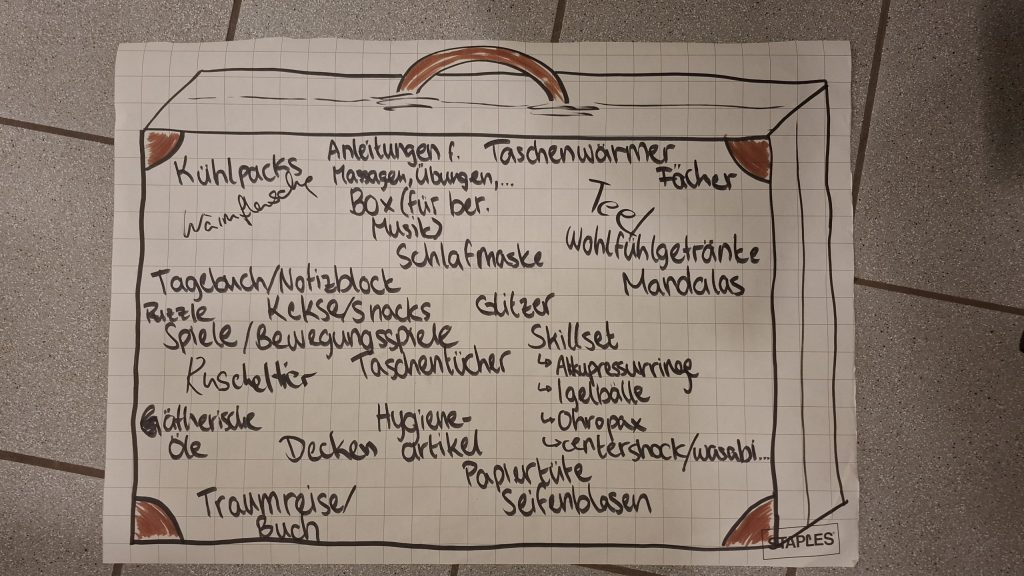 Kühlpacks
Wärmflasche
Anleitungen f.
Massagen, Übungen,...
Taschenwärmer
Fächer
Box (für ber.
Musik)
Tee/
Wohlfühlgetränke
Schlafmaske
Mandalas
Tagebuch/Notizblock
Puzzle
Kekse/Snacks
Glitzer
Spiele/Bewegungsspiele
Skillset
↳ Akkupressurringe
↳ Igelbälle
↳ Ohropax
↳ centershock/wasabi...
Kuscheltier
Taschentücher
ätherische
Öle
Decken
Hygiene-
artikel
Papiertüte
Seifenblasen
Traumreise/
Buch
STAPLES